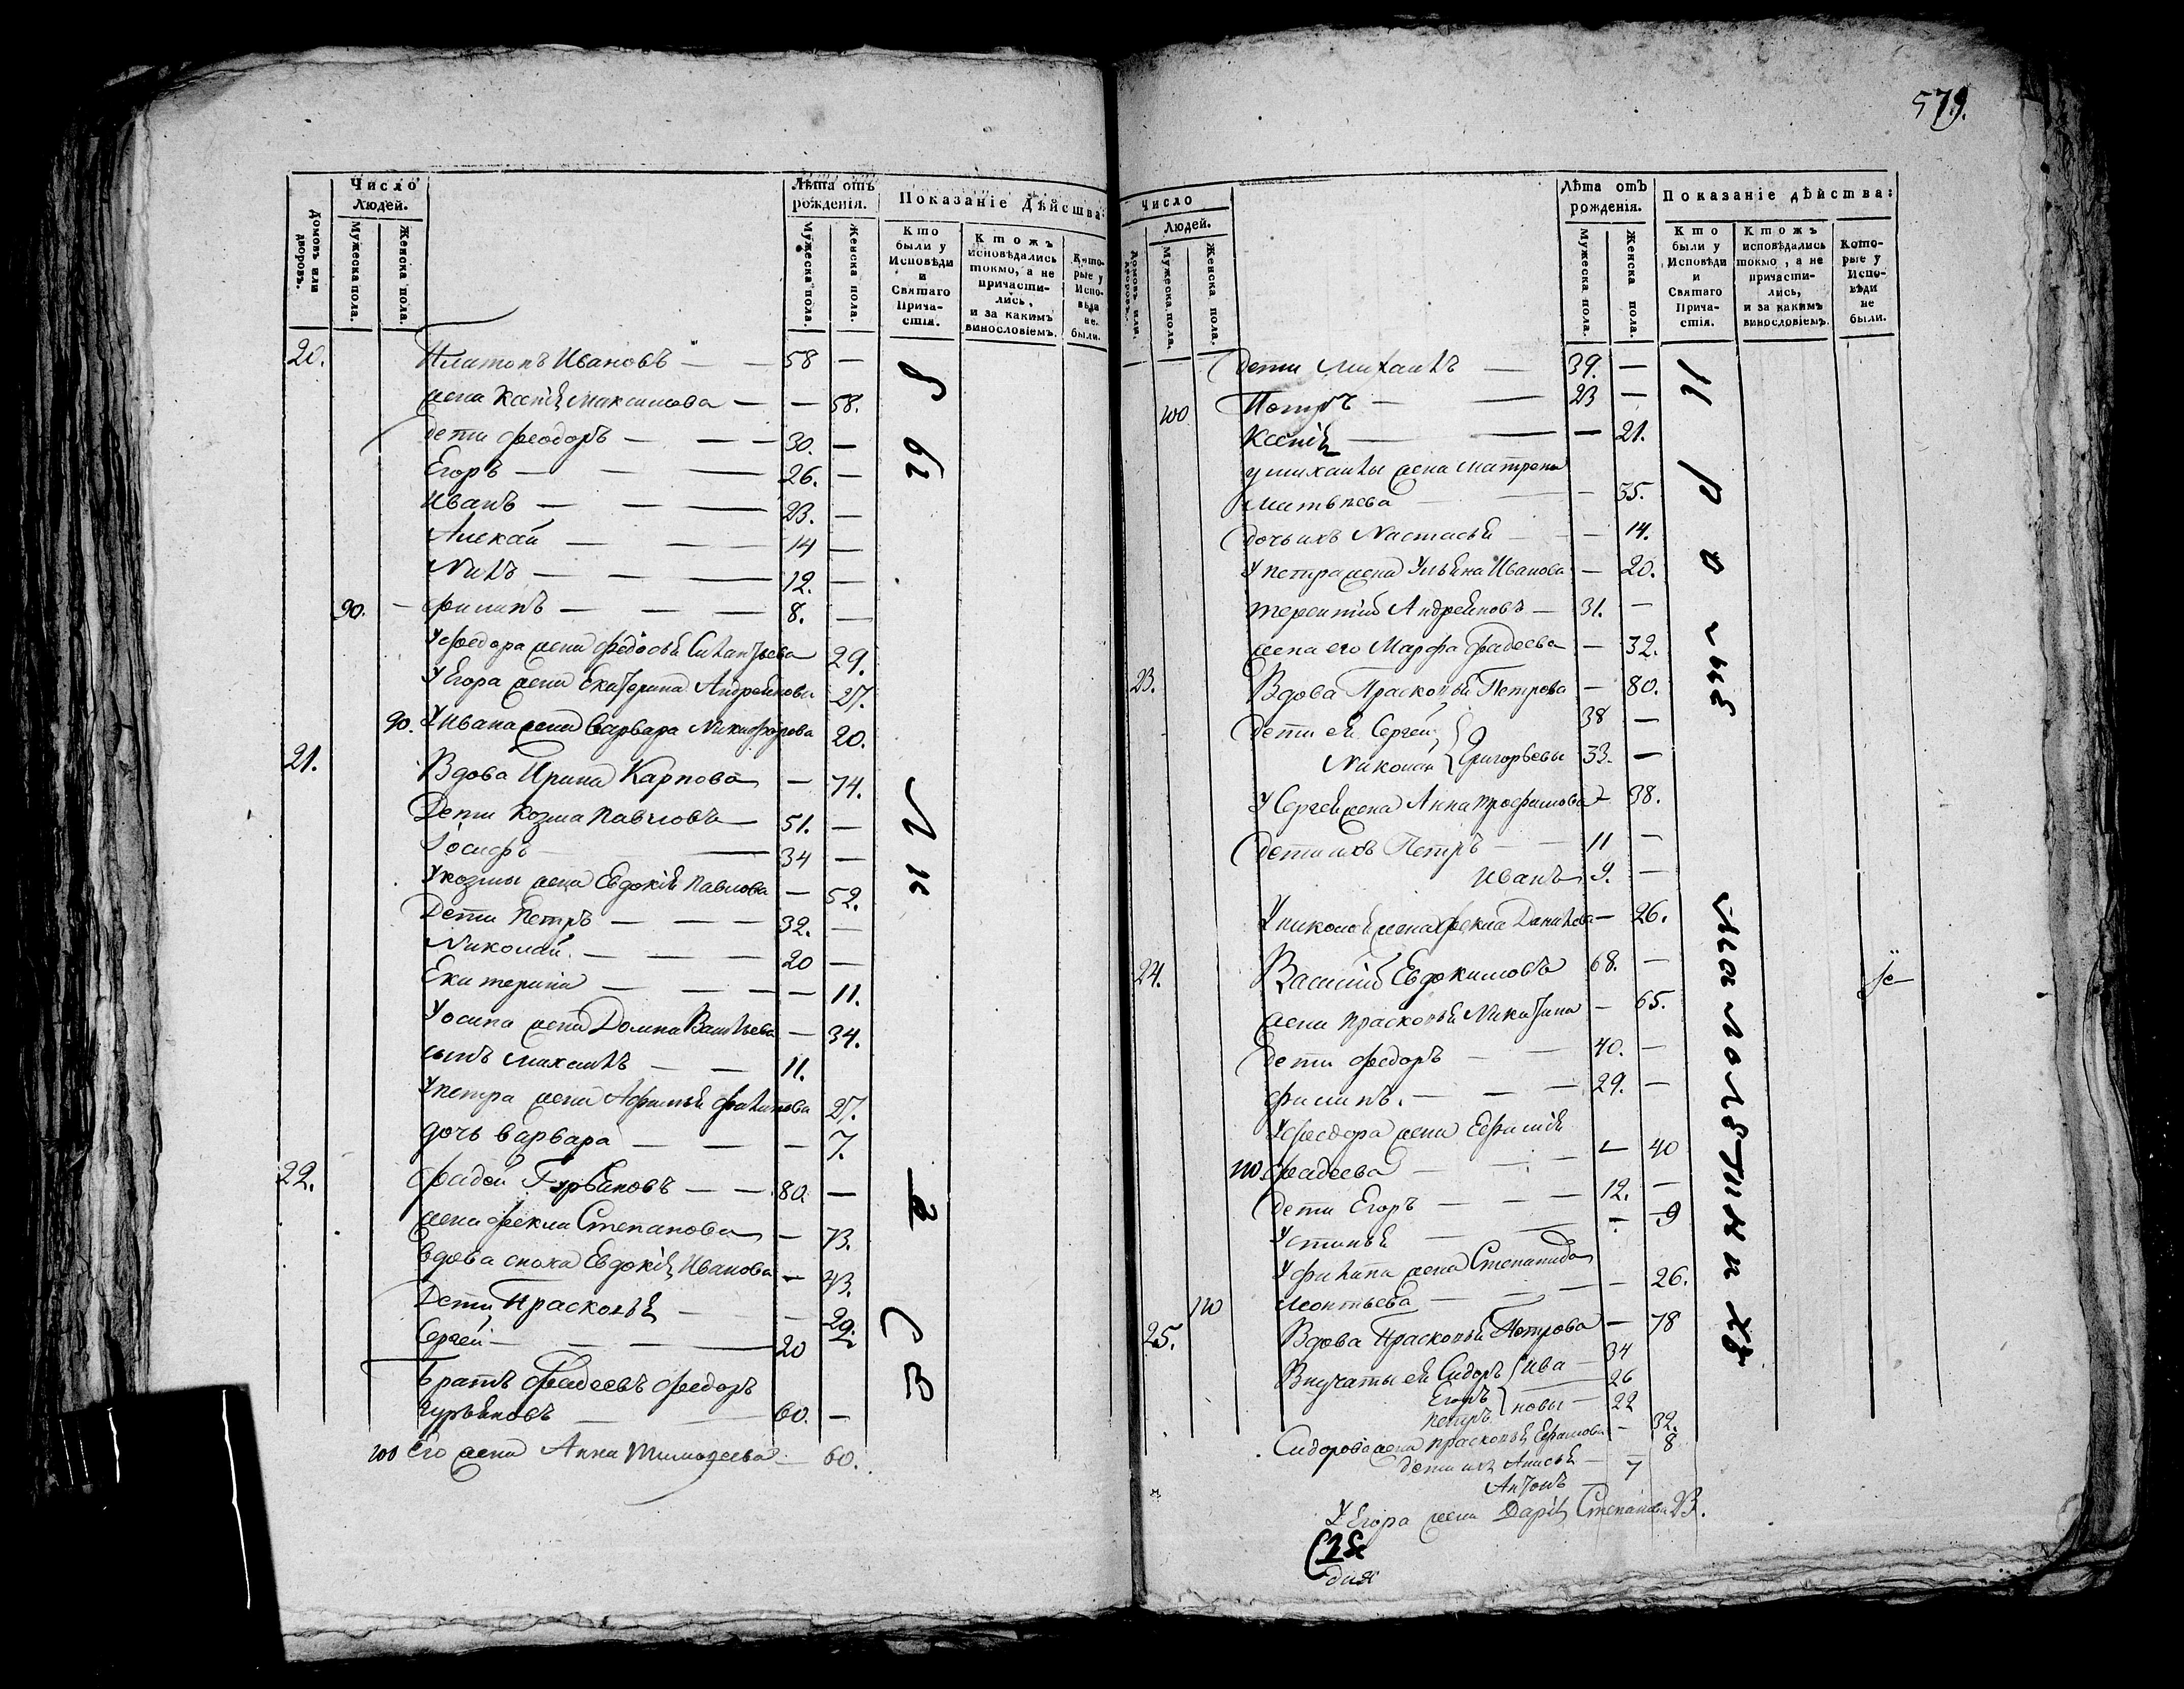 Число Людей.
Лѣта отъ рожденія.
Показаніе Дѣйства:
Домовъ или дворовъ.
Мужеска пола.
Женска пола.
Мужеска пола.
Женска пола.
Кто были у Исповѣди и Святаго Прича-стія.
Ктожъ исповѣдались токмо, а не причасти-лись, и за какимъ винословіемъ.
Кото-рые у Испо-вѣди не были.
20. Платонъ Ивановъ — 58 —
жена Ксенія Максимова — — 58.
дети Феодоръ — 30. —
Егоръ — 26. —
Иванъ — 23. —
Алекѣй — 14 —
Нилъ — 12. —
90. Филипъ — 8. —
У Федора жена Федосья 29.
У Егора жена Екатерина Андреянова 27.
90. У Ивана жена Варвара Никифорова 20.
21. Вдова Ирина Карпова — 74.
Дети Козма Павловъ — 51. —
Іосифъ — 34 —
У Козмы жена Евдокія Павлова — 52.
Дети Петръ — 32. —
Николай — 20 —
Екатерина — — 11.
У осипа жена Домна Васильева — 34.
сынъ Михаилъ — 11.
У Петра жена Афимья Филипова 27.
дочь Варвара — 7.
22. Фадей Гурьяновъ — 80. —
жена Фекла Степанова — 73.
вдова сноха Евдокія Иванова — 43.
Дети Прасковья — 29.
Сергей — 20
братъ Фадеевъ Федоръ
Гурьяновъ — 60. —
100 Его жена Анна Тимофеева — 60.
579.
Число Людей.
Лѣта отъ рожденія.
Показаніе дѣйства:
Домовъ или дворовъ.
Мужеска пола.
Женска пола.
Мужеска пола.
Женска пола.
Кто были у Исповѣди и Святаго Прича-стія.
Ктожъ исповѣдались токмо, а не причасти-лись, и за какимъ винословіемъ.
Кото-рые у Испо-вѣди не были.
дети Михаилъ — 39. —
100 Петръ — 23 —
Ксенія — — 21.
у михаилы жена матрена
Матвеева — 35.
дочь ихъ Настасья — 14.
У Петра жена Ульяна Иванова — 20.
терентий Андреяновъ — 31. —
жена его Марфа Фадеева — 32.
23. Вдова Прасковья Петрова — 80.
дети ея Сергей 38 —
Николай Григорьевы 33. —
У Сергея жена Анна трофимова — 38.
дети ихъ Петръ — 11 —
Иванъ 9. —
У николая жена Фекла Данилова — 26.
24. Василий Евдокимовъ 68. —
жена Прасковья Никитина — 65.
дети Федоръ — 40. —
филипъ. — 29. —
У Феодора жена Ефимия
110 Фадеева — 40
дети Егоръ — 12. —
Устинья — 9
У Филипа жена Степанида
110 Леонтьева — 26.
25. Вдова Прасковья Петрова — 78
Внучаты ея Сидоръ Ива — 34
Егоръ 26
Петръ новы — 22
Сидорова жена прасковья Ефимова — 32.
дети ихъ Анисья — 8
Антонъ 7
У Егора жена Дарія Степанова 23.